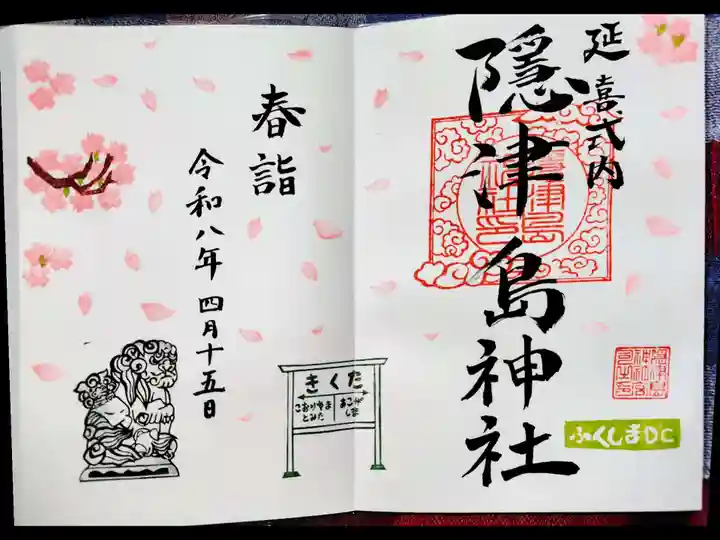 延喜式内
隠津島神社
ふくしまDC
春詣
令和八年 四月十五日
きくた
こおりやま
とみた
あこがしま